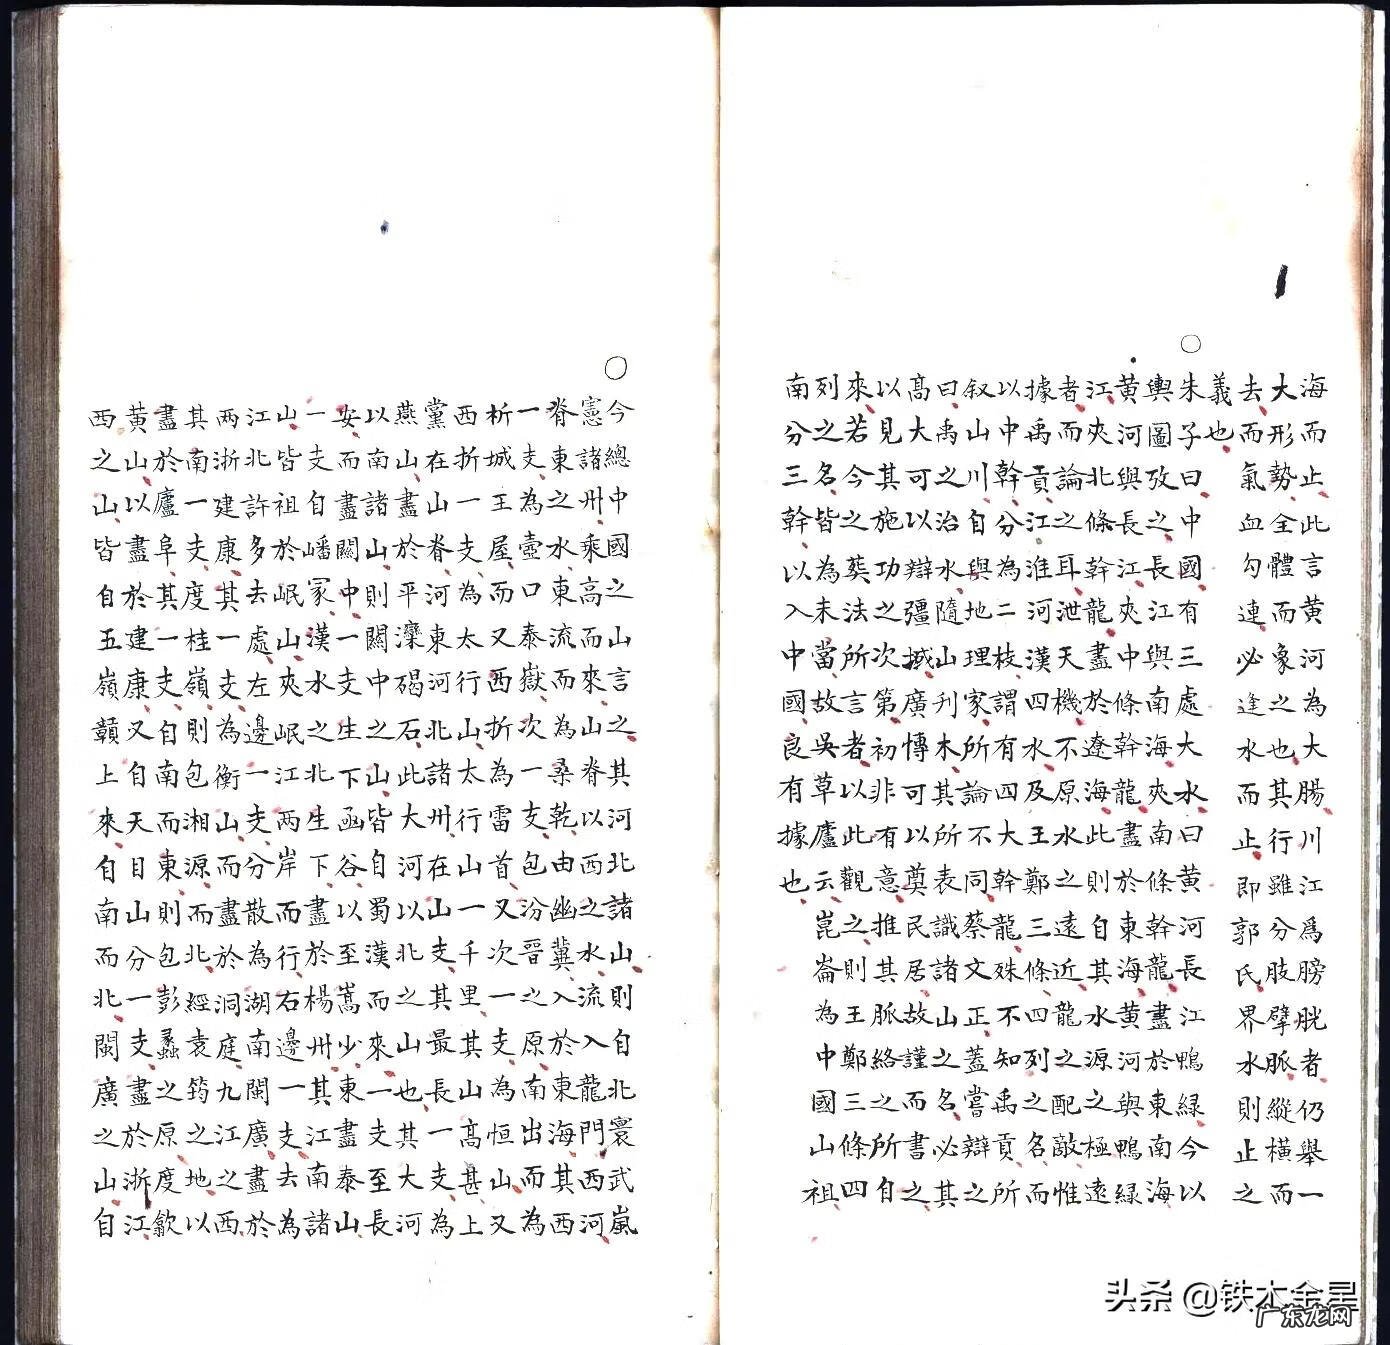 海而止此言黄河為大腸川江爲膀胱者仍舉一
大形勢全體而象之也其行雖分肢擘脈縱横而
去而氣血勾連必逢水而止即郭氏界水則止之
義也
朱子曰中國有三處大水曰黄河長江鴨緑今以
輿圖攷之長江與南海夾南條幹龍盡於東南海
黄河與長江夾中條幹龍盡於東海黄河與鴨緑
江夾北條幹龍盡於遼海此則自其水源之極遠
者而論之耳泄天機不原水之遠近龍之配敵惟
據禹貢江淮河漢四水及王鄭三條四列之名而
以中幹分為二枝謂有四大幹龍殊不知禹貢所
叙山川自與地理家所論不同蔡文正蓋嘗辯之
曰禹之治水隨山刋木其所表識諸山之名必其
髙大可以辯疆域廣博可以奠民居故謹而書之
以見其施功之次第初非有意推其脈絡之所自
來若今之葬法所言者以此觀之則王鄭三條四
列之名皆為未當故吳草廬云崑崙為中國山祖
南分三幹以入中國良有據也
今總中國之山言之其河北諸山則自北寰武嵐
憲諸州乘高而來山脊以西之水流入龍門西河
脊東之水東流而為桑乾由幽冀入於東海其西
一支為壺口泰嶽次一支包汾晉之原南出而為
析城王屋而又西折為雷首又次一支為恒山又
西折一支為太行山太行山一千里其山高甚上
黨在山脊河東河北諸州在山支其最長一支為
燕山盡於平灤碣石此大河以北之山也其大河
以南諸山則關中之山皆自蜀漢而來一支至長
安而盡關中一支生下函谷以至嵩少東盡泰山
一支自嶓冢漢水之北生下盡於楊州其江南諸
山皆祖於岷山夾岷江兩岸而行右邊一支去為
江北許多去處左邊一支分散為湖南閩廣盡於
兩浙建康其一支為衡山而盡於洞庭九江之西
其南一支度桂嶺則包湘源而北經袁筠之地以
盡於廬阜其一支自南而東則包彭蠡之原度歙
黄山以盡於建康又自天目山分一支盡於浙江
西之山皆自五嶺贛上來自南而北閩廣之山自
头条 @铁木金星
广东龙网